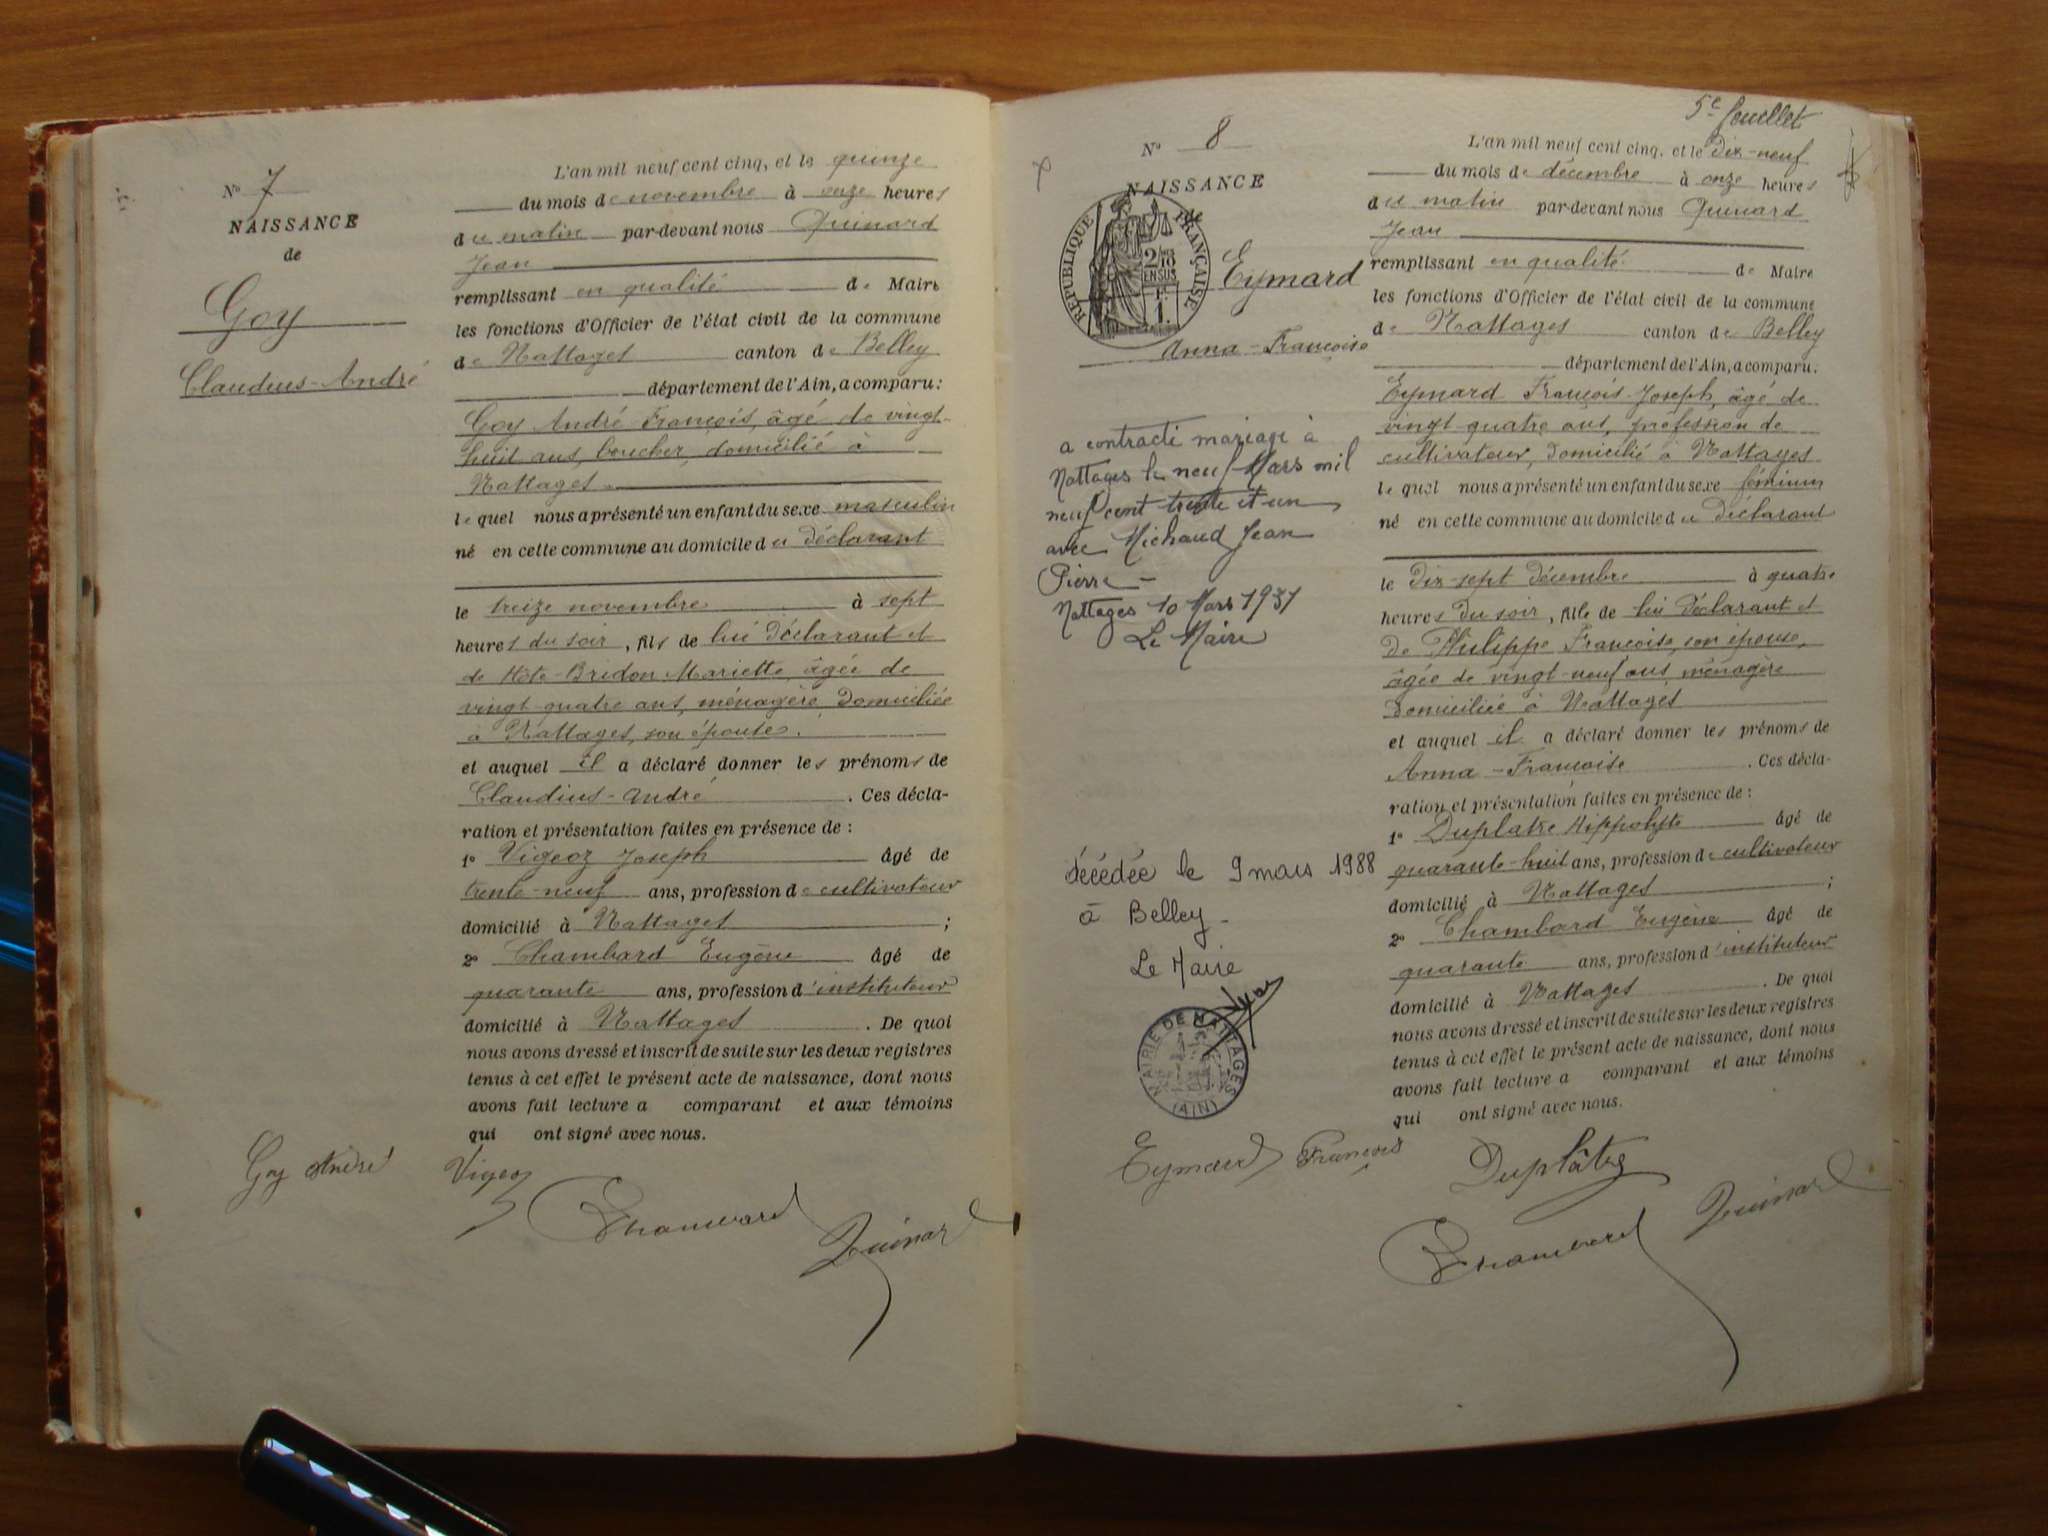 N° 7
NAISSANCE
de
Goy
Claudius-André
L'an mil neuf cent cinq, et le quinze
du mois de novembre à onze heures
du matin par-devant nous Quinard
Jean
remplissant en qualité de Maire
les fonctions d'Officier de l'état civil de la commune
de Nattages canton de Belley
département de l'Ain, a comparu:
Goy André François, âgé de vingt-
huit ans, boucher, domicilié à
Nattages
lequel nous a présenté un enfant du sexe masculin
né en cette commune au domicile du déclarant
le treize novembre à sept
heures du soir, fils de lui déclarant et
de Hôte-Bridon Mariette, âgée de
vingt-quatre ans, ménagère, domiciliée
à Nattages, son épouse.
et auquel il a déclaré donner les prénoms de
Claudius-André. Ces décla-
ration et présentation faites en présence de :
1° Vigeoz Joseph âgé de
trente-neuf ans, profession de cultivateur
domicilié à Nattages ;
2° Chambard Eugène âgé de
quarante ans, profession d'instituteur
domicilié à Nattages. De quoi
nous avons dressé et inscrit de suite sur les deux registres
tenus à cet effet le présent acte de naissance, dont nous
avons fait lecture a comparant et aux témoins
qui ont signé avec nous.
Goy André Vigeoz
Chambard Quinard
5e feuillet
N° 8
NAISSANCE
de
REPUBLIQUE FRANÇAISE
2/10
EN SUS
1 F.
Eymard
Anna-Françoise
a contracté mariage à
Nattages le neuf Mars mil
neuf cent trente et un
avec Michaud Jean
Pierre -
Nattages 10 Mars 1931
Le Maire
décédée le 9 mars 1988
à Belley -
Le Maire
MAIRIE DE NATTAGES
(AIN)
L'an mil neuf cent cinq, et le Dix-neuf
du mois de décembre à onze heures
du matin par-devant nous Quinard
Jean
remplissant en qualité de Maire
les fonctions d'Officier de l'état civil de la commune
de Nattages canton de Belley
département de l'Ain, a comparu:
Eymard François-Joseph, âgé de
vingt-quatre ans, profession de
cultivateur, domicilié à Nattages
lequel nous a présenté un enfant du sexe féminin
né en cette commune au domicile du déclarant
le dix-sept décembre à quatre
heures du soir, fille de lui déclarant et
de Philippe Françoise, son épouse,
âgée de vingt-neuf ans, ménagère
domiciliée à Nattages
et auquel il a déclaré donner les prénoms de
Anna-Françoise. Ces décla-
ration et présentation faites en présence de :
1° Duplatre Hippolyte âgé de
quarante-huit ans, profession de cultivateur
domicilié à Nattages ;
2° Chambard Eugène âgé de
quarante ans, profession d'instituteur
domicilié à Nattages. De quoi
nous avons dressé et inscrit de suite sur les deux registres
tenus à cet effet le présent acte de naissance, dont nous
avons fait lecture a comparant et aux témoins
qui ont signé avec nous.
Eymard François Duplâtre
Chambard Quinard